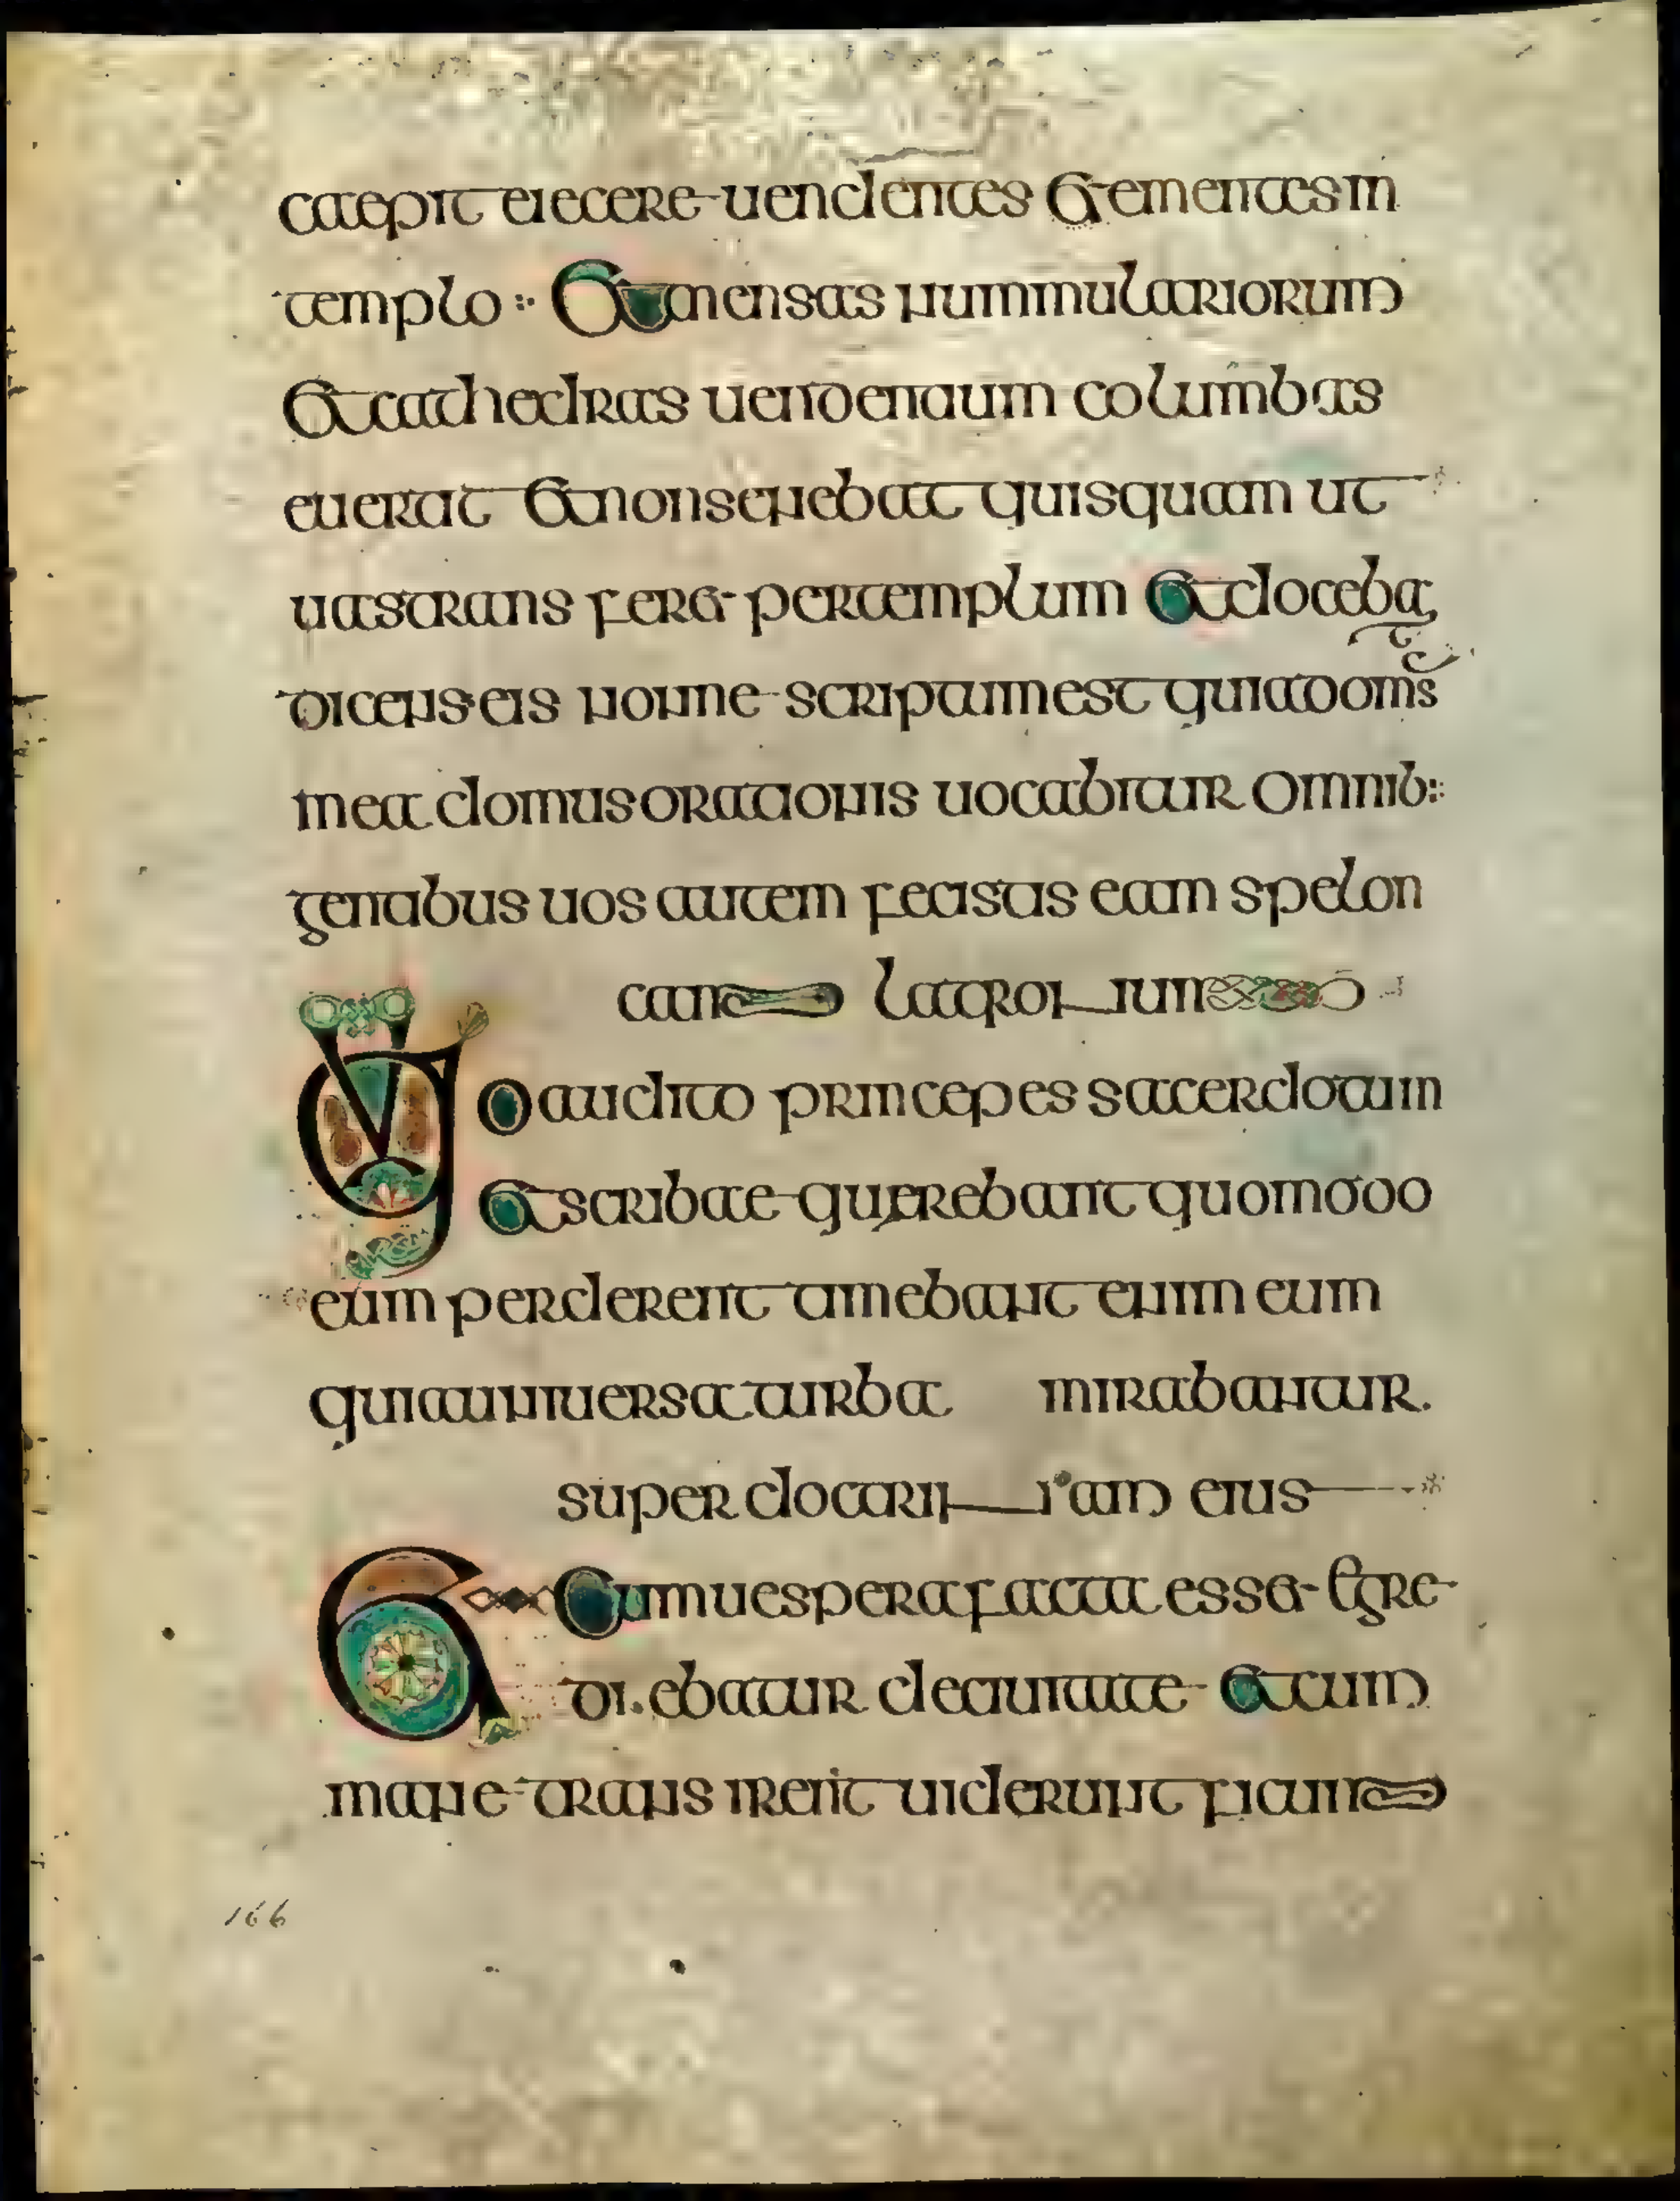 caepit eiecere uendentes et ementes in
templo et mensas nummulariorum
et cathedras uendentium columbas
euertit et non senebat quisquam ut
uas trans feret per templum et docebat
dicens eis nonne scriptum est quia dom's
mea domus orationis uocabitur omnib:
gentibus uos autem fecistis eam spelon
cam latronum
Quo audito principes sacerdotum
et scribae querebant quomodo
eum perderent timebant enim eum
quia uniuersa turba mirabantur.
super doctrinam eius
Et cum uespera facta esset egre
diebatur de ciuitate et cum
mane transirent uiderunt ficum
166